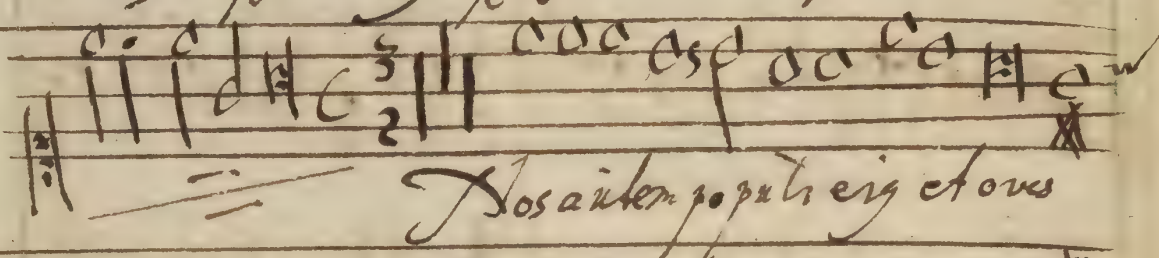 3
2
Nos autem populi eiꝰ et oves